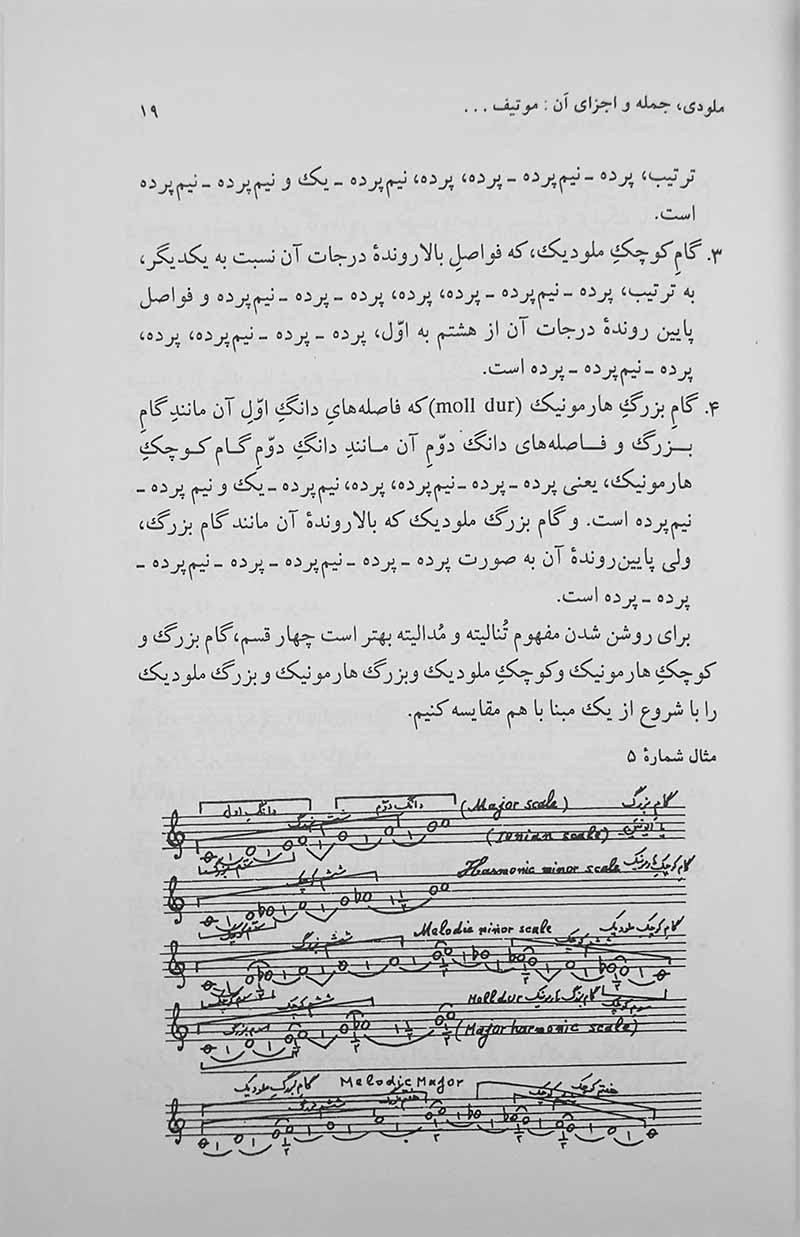 ملودی، جمله و اجزای آن : موتیف . . .
۱۹
ترتیب، پرده ـ نیم‌پرده ـ پرده، پرده، نیم‌پرده ـ یک و نیم‌پرده ـ نیم‌پرده
است.
۳. گامِ کوچکِ ملودیک، که فواصلِ بالاروندهٔ درجات آن نسبت به یکدیگر،
به ترتیب، پرده ـ نیم‌پرده ـ پرده، پرده، پرده ـ پرده ـ نیم‌پرده و فواصل
پایین روندهٔ درجات آن از هشتم به اوّل، پرده ـ پرده ـ نیم‌پرده، پرده،
پرده ـ نیم‌پرده ـ پرده است.
۴. گامِ بزرگِ هارمونیک (moll dur) که فاصله‌هایِ دانگِ اوّلِ آن مانندِ گامِ
بـزرگ و فـاصله‌های دانگ دوّمِ آن مـانندِ دانگِ دوّمِ گـام کـوچکِ
هارمونیک، یعنی پرده ـ پرده ـ نیم‌پرده، پرده، نیم‌پرده ـ یک و نیم پرده ـ
نیم‌پرده است. و گام بزرگ ملودیک که بالاروندهٔ آن مانند گام بزرگ،
ولی پایین‌روندهٔ آن به صورت پرده ـ پرده ـ نیم‌پرده ـ پرده ـ نیم‌پرده ـ
پرده ـ پرده است.
برای روشن شدن مفهوم تُنالیته و مُدالیته بهتر است چهار قسم، گام بزرگ و
کوچکِ هارمونیک و کوچکِ ملودیک و بزرگ هارمونیک و بزرگ ملودیک
را با شروع از یک مبنا با هم مقایسه کنیم.
مثال شمارهٔ ۵
دانگ اول دانگ دوّم (Major scale) گام بزرگ
ششم بزرگ (Ionian scale)
ششم کوچک Harmonic minor scale گام کوچک هارمونیک
سوم کوچک
ششم بزرگ Melodic minor scale ششم کوچک گام کوچک ملودیک
سوم کوچک ششم کوچک Moll dur گام بزرگ هارمونیک سوم کوچک
سوم بزرگ (Major harmonic scale)
گام بزرگ ملودیک Melodic Major هفتم کوچک
ششم بزرگ هفتم بزرگ ششم کوچک